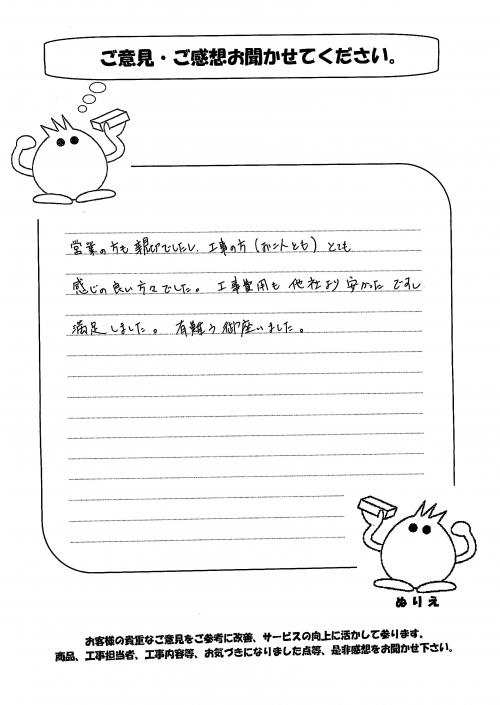 ご意見・ご感想お聞かせてください。
営業の方も親切でしたし、工事の方(お二人とも)とても
感じの良い方々でした。工事費用も他社より安かったですし
満足しました。有難う御座いました。
ぬりえ
お客様の貴重なご意見をご参考に改善、サービスの向上に活かして参ります。
商品、工事担当者、工事内容等、お気づきになりました点等、是非感想をお聞かせ下さい。